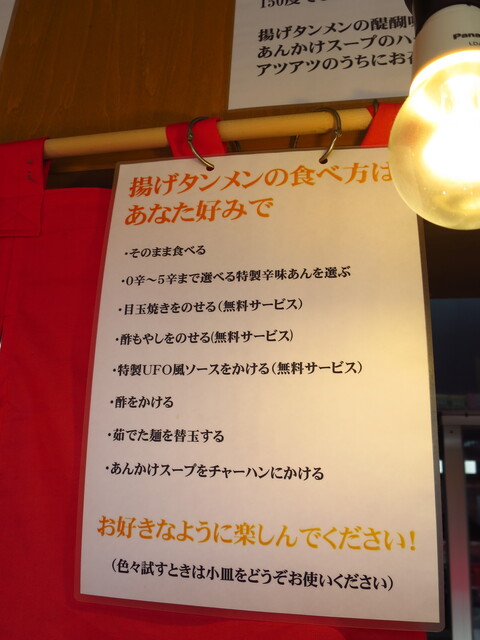 150度で
揚げタンメンの醍醐味
あんかけスープのハ
アツアツのうちにお
Pana
揚げタンメンの食べ方は
あなた好みで
・そのまま食べる
・0辛～5辛まで選べる特製辛味あんを選ぶ
・目玉焼きをのせる（無料サービス）
・酢もやしをのせる(無料サービス)
・特製UFO風ソースをかける（無料サービス）
・酢をかける
・茹でた麺を替玉する
・あんかけスープをチャーハンにかける
お好きなように楽しんでください！
（色々試すときは小皿をどうぞお使いください）